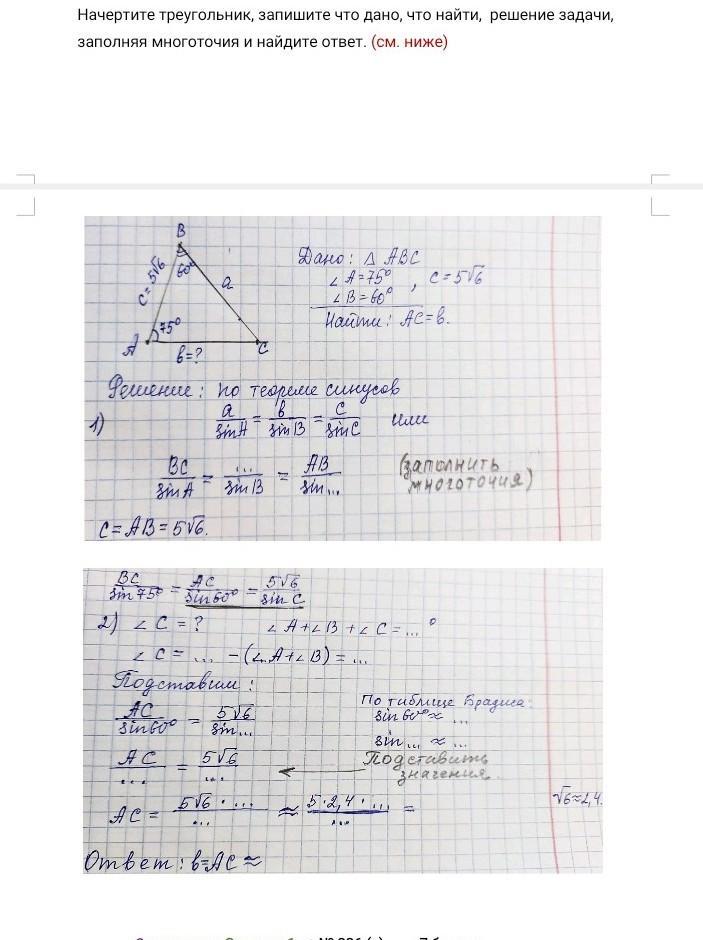 Начертите треугольник, запишите что дано, что найти, решение задачи,
заполняя многоточия и найдите ответ. (см. ниже)
B
60°
c = 5√6
a
75°
A
C
b=?
Дано: △ ABC
∠A=75°, c=5√6
∠B=60°
Найти: AC=b.
Решение: по теореме синусов
1) a/sinA = b/sinB = c/sinC или
BC/sinA = .../sinB = AB/sin... (заполнить многоточия)
C=AB=5√6.
BC/sin75° = AC/sin60° = 5√6/sin C
2) ∠C = ? ∠A+∠B+∠C=...°
∠C = ... -(∠A+∠B)=...
Подставим:
AC/sin60° = 5√6/sin...
По таблице Брадиса:
sin60°≈ ...
sin... ≈ ...
AC/... = 5√6/...
Подставить
значения.
AC = 5√6·.../... ≈ 5·2,4·.../... =
√6≈2,4.
Ответ: b=AC≈